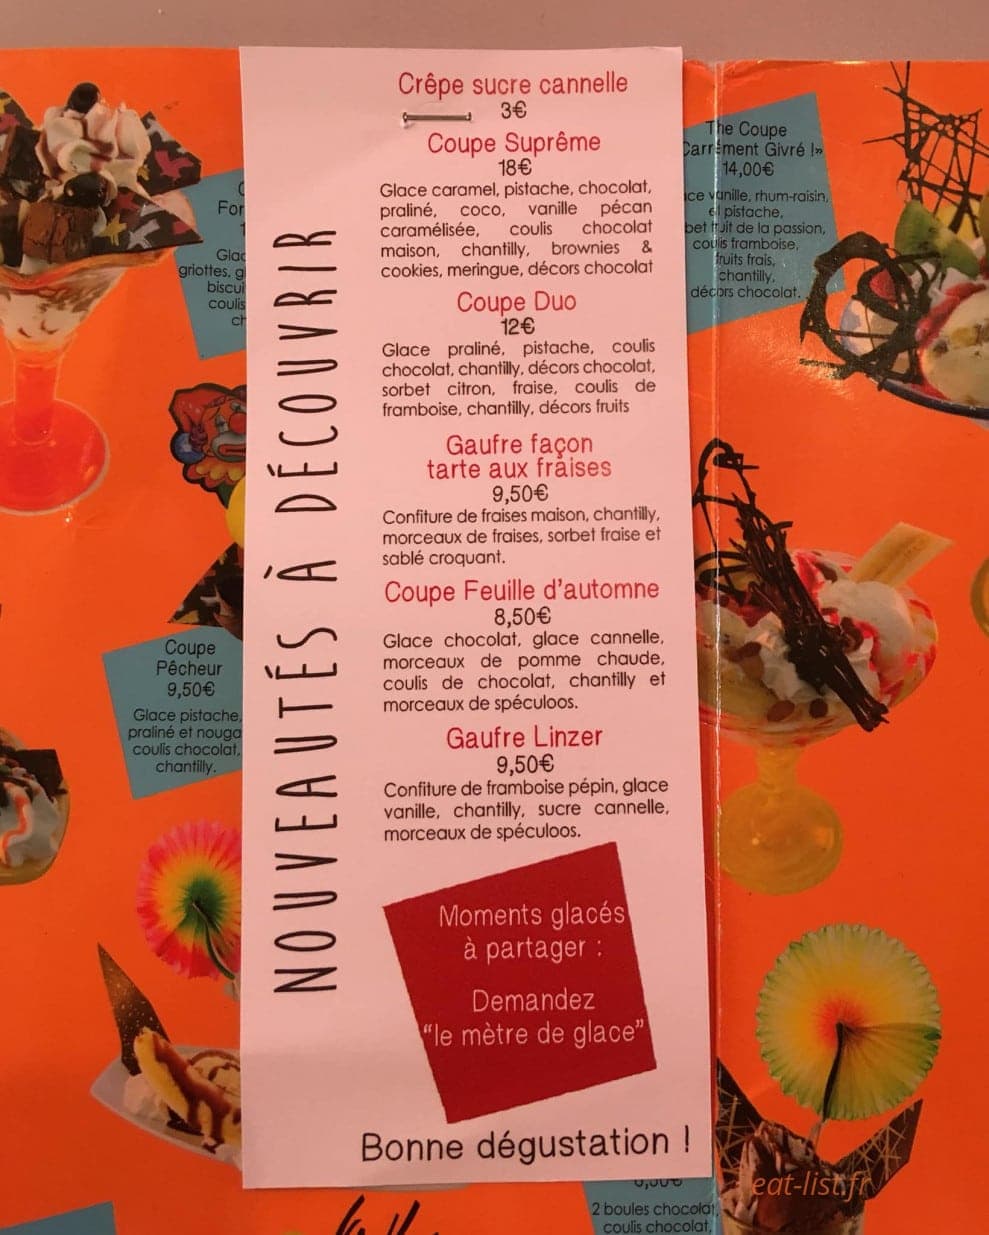 Crêpe sucre cannelle
3€
Coupe Suprême
18€
Glace caramel, pistache, chocolat,
praliné, coco, vanille pécan
caramélisée, coulis chocolat
maison, chantilly, brownies &
cookies, meringue, décors chocolat
Coupe Duo
12€
Glace praliné, pistache, coulis
chocolat, chantilly, décors chocolat,
sorbet citron, fraise, coulis de
framboise, chantilly, décors fruits
Gaufre façon
tarte aux fraises
9,50€
Confiture de fraises maison, chantilly,
morceaux de fraises, sorbet fraise et
sablé croquant.
Coupe Feuille d'automne
8,50€
Glace chocolat, glace cannelle,
morceaux de pomme chaude,
coulis de chocolat, chantilly et
morceaux de spéculoos.
Gaufre Linzer
9,50€
Confiture de framboise pépin, glace
vanille, chantilly, sucre cannelle,
morceaux de spéculoos.
NOUVEAUTÉS À DÉCOUVRIR
Moments glacés
à partager :
Demandez
"le mètre de glace"
Bonne dégustation !
griottes,
coulis
Coupe
Pêcheur
9,50€
Glace pistache,
praliné et
coulis chocolat,
chantilly.
The Coupe
Givré !»
14,00€
vanille, rhum-raisin,
pistache,
fruit de la passion,
coulis framboise,
fruits frais,
chantilly,
décors chocolat.
2 boules
coulis chocolat,
eat-list.fr